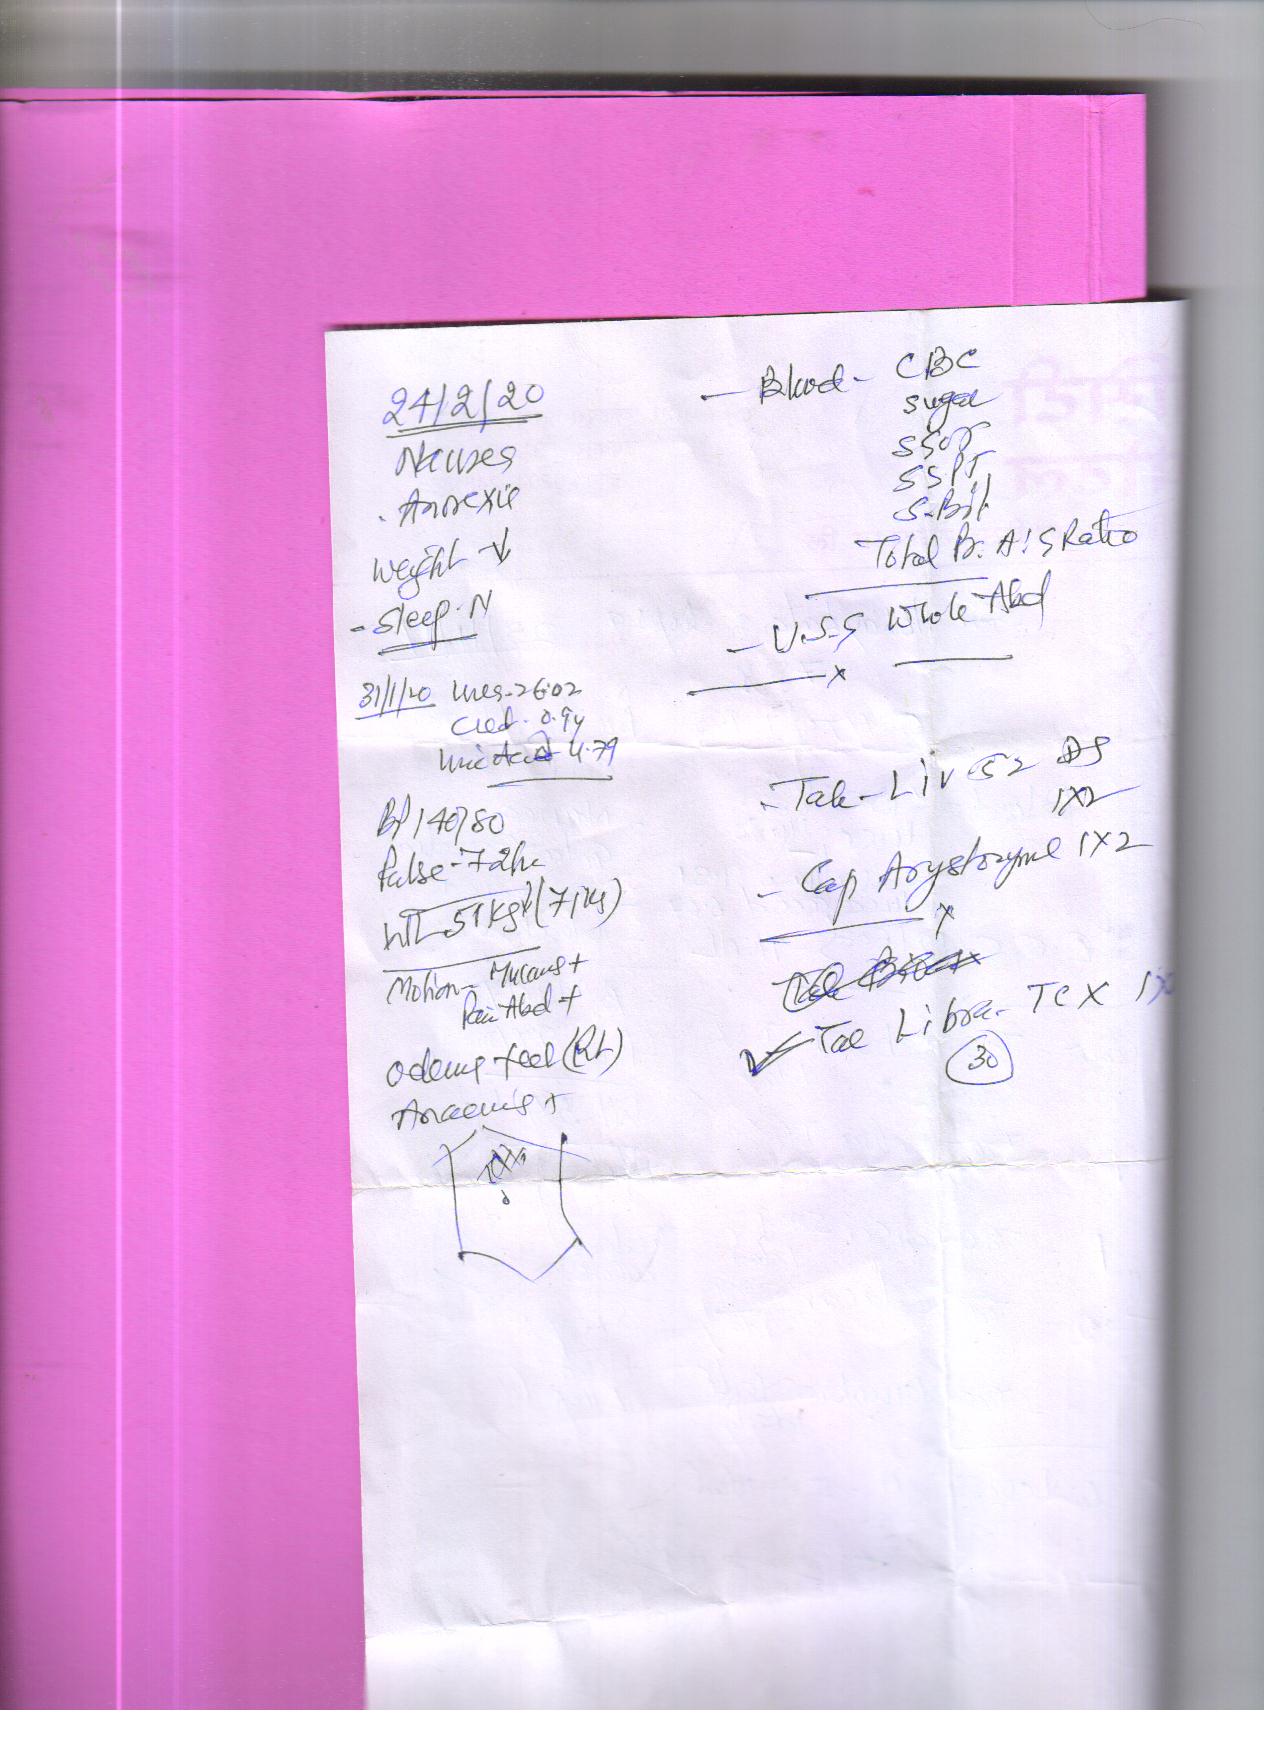 24/2/20
Nauses
Anorexie
Weight ↓
- Sleep. N
31/1/20 Urea-26.02
Creat. 0.94
Uric Acid 4.79
BP 140/80
Pulse-72/m
WT 51 Kg (71 Kg)
Motion- Mucous +
Pain Abd +
Odema feet (RL)
Anaemia +
- Blood - CBC
Sugar
SGOT
SGPT
S-Bil
Total Pr. A:G Ratio
- U.S.G Whole Abd
x
- Tab - Liv 52 DS
1x2
- Cap Arystozyme 1x2
x
Tab Libra-Tex
30